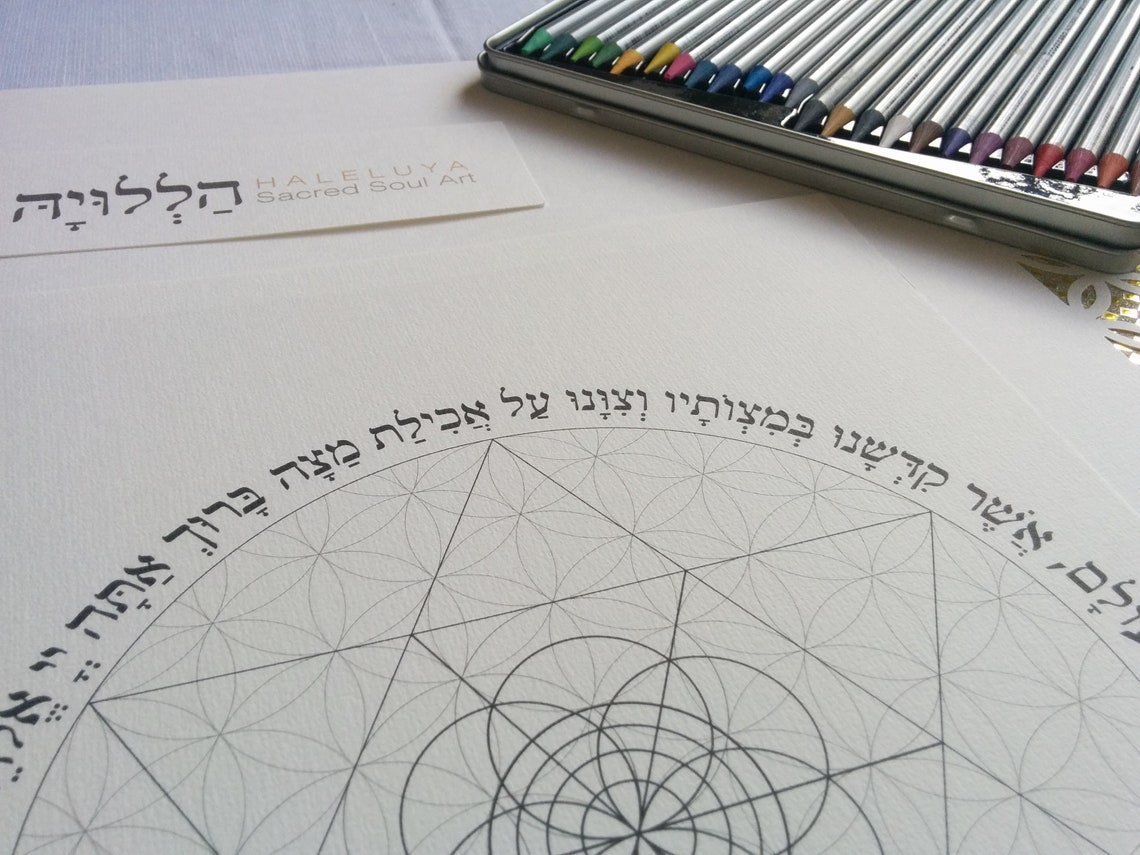 הַלְלוּיָהּ
HALELUYA
Sacred Soul Art
אֲשֶׁר קִדְּשָׁנוּ בְּמִצְוֹתָיו וְצִוָּנוּ עַל אֲכִילַת מַצָּה בָּרוּךְ אַתָּה יְיָ